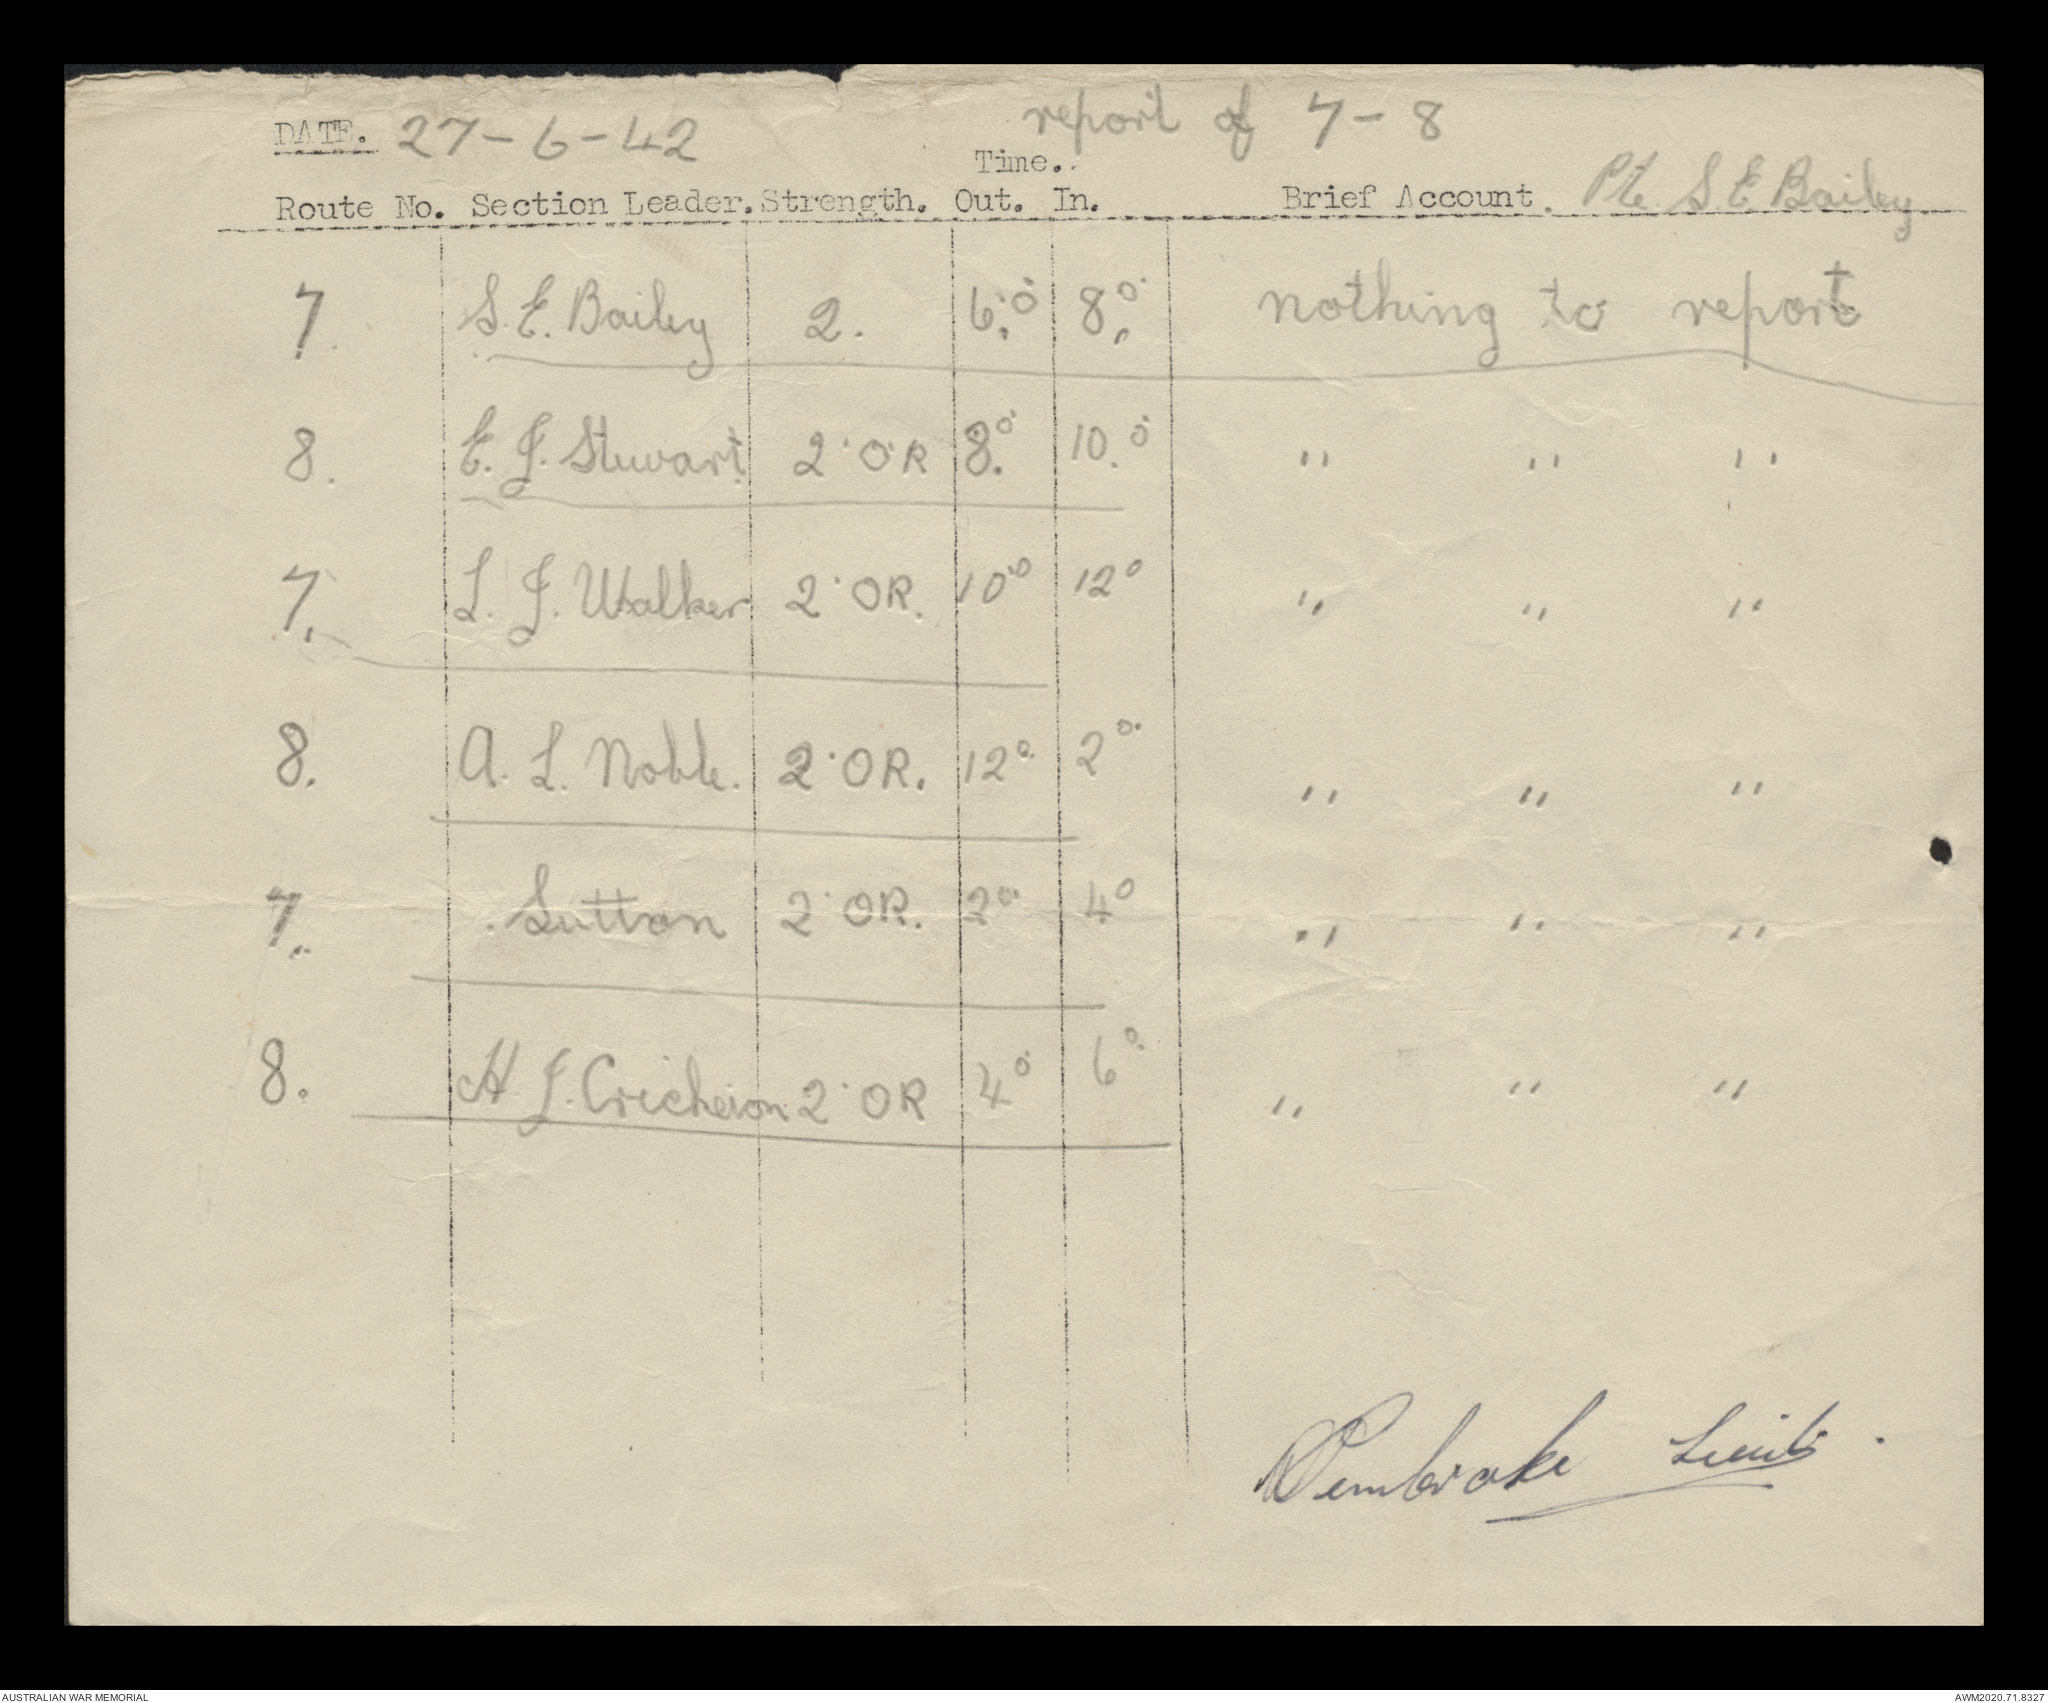 report of 7-8
DATE. 27-6-42
Time.
Route No. Section Leader. Strength. Out. In. Brief Account. Pte. S. E Bailey
7. S. E. Bailey 2. 6.0 8.0 nothing to report
8. E. J. Stuwart 2 OR 8.0 10.0 " " "
7. L. J. Walker 2 OR. 10 0 12 0 " " "
8. A. L. Noble. 2 OR. 12 0 2 0 " " "
7. Sutton 2 OR. 2 0 4 0 " " "
8. H. J. 2 OR 4 0 6 0 " " "
Pembroke Lieut.
AUSTRALIAN WAR MEMORIAL AWM2020.71.8327